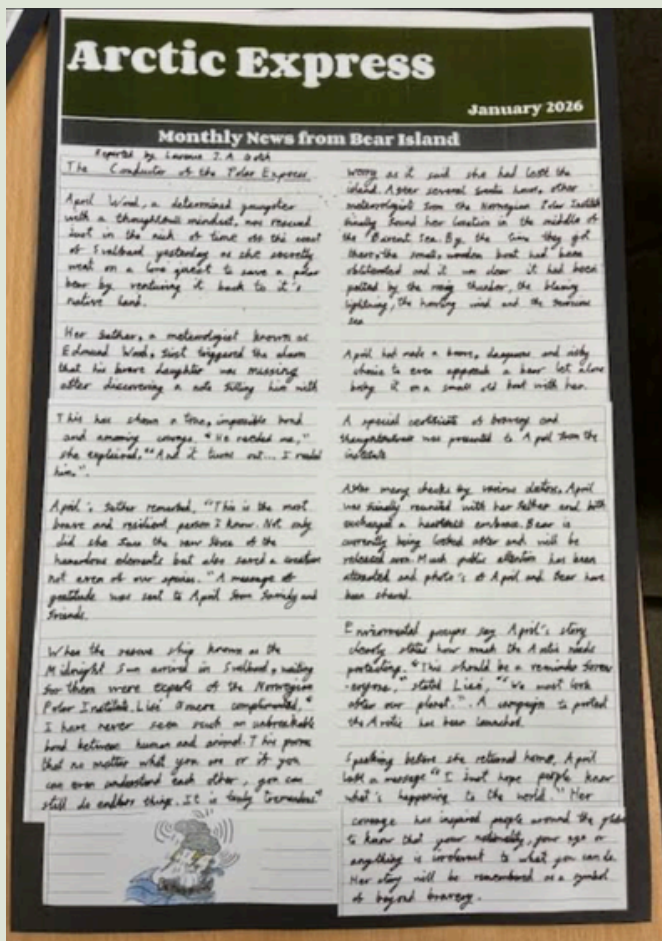 Arctic Express
January 2026
Monthly News from Bear Island
Reported by Laurence J.A
The Conductor of the Polar Express
April Wood, a determined youngster
with a thoughtful mindset, was rescued
just in the nick of time off the coast
of Svalbard yesterday as she secretly
went on a lone quest to save a polar
bear by venturing it back to it's
native land.
Her father, a meteorologist known as
Edmund Wood, first triggered the alarm
that his brave daughter was missing
after discovering a note filling him with
This has shown a true, impossible bond
and amazing courage. "He needed me,"
she explained, "And it turns out... I needed
him.".
April's father remarked, "This is the most
brave and resilient person I know. Not only
did she face the raw force of the
hazardous elements but also saved a creature
not even of our species. "A message of
gratitude was sent to April from family and
friends.
When the rescue ship known as the
Midnight Sun arrived in Svalbard, waiting
for them were experts of the Norwegian
Polar Institute. Lise complimented, "
I have never seen such an unbreakable
bond between human and animal. This proves
that no matter what you are or if you
can even understand each other, you can
still do endless thing. It is truly tremendous"
worry as it said she had left the
island. After several frantic hours, other
meteorologist from the Norwegian Polar Institute
finally found her location in the middle of
the Barent Sea. By the time they got
there, the small, wooden boat had been
obliterated and it was clear it had been
pelted by the thunder, the blazing
lightning, the howling wind and the ferocious
sea
April had made a brave, dangerous and risky
choice to even approach a bear let alone
bring it on a small old boat with her.
A special certificate of bravery and
thoughtfulness was presented to April from the
institute
After many checks by various doctors, April
was finally reunited with her father and both
exchanged a heartfelt embrace. Bear is
currently being looked after and will be
released soon. Much public attention has been
attracted and photo's of April and Bear have
been shared.
Enviormental groups say April's story
clearly states how much the Arctic needs
protecting. "This should be a reminder for
everyone," stated Lise, "We must look
after our planet.". A campaign to protect
the Arctic has been launched.
Speaking before she returned home, April
left a message "I just hope people know
what's happening to the world." Her
courage has inspired people around the globe
to know that your nationality, your age or
anything is irrelevant to what you can do.
Her story will be remembered as a symbol
of beyond bravery.